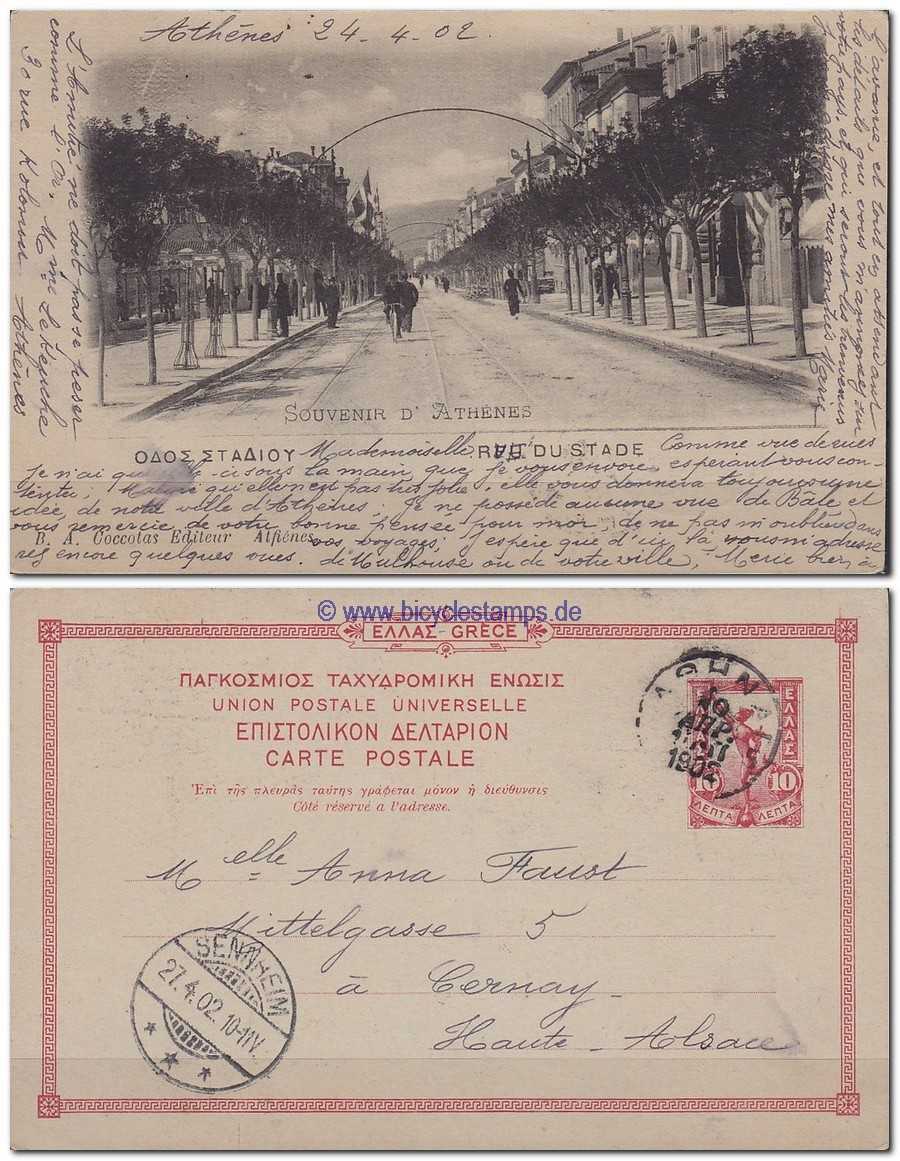 Athènes 24-4-02
L'Amitié ne doit pas se peser
comme l'Or. M. me Lebeuche
30 rue Kolonou Athènes
SOUVENIR D' ATHÈNES
ΟΔΟΣ ΣΤΑΔΙΟΥ Mademoiselle, RUE DU STADE Comme vue de rues
je n'ai que sous la main, que je vous envoie, espérant vous con-
tenter; Malgré qu'elle n'en pas très jolie, elle vous donnera toujours une
idée de notre ville d'Athènes. Je ne possède aucune vue de Bâle et
vous remercie de votre bonne pensée pour moi de ne pas m'oublier dans
B. A. Coccolas Editeur Athénes vos voyages; j'espère que d'ici là vous m'adresse
rez encore quelques vues. de Mulhouse ou de votre ville, Merci bien à
l'avance, et tout en attendant
les détails que vous m'
votre pays, et qui seront les bienvenus
mes amitiés
© www.bicyclestamps.de
ΕΛΛΑΣ-GRÈCE
ΠΑΓΚΟΣΜΙΟΣ ΤΑΧΥΔΡΟΜΙΚΗ ΕΝΩΣΙΣ
UNION POSTALE UNIVERSELLE
ΕΠΙΣΤΟΛΙΚΟΝ ΔΕΛΤΑΡΙΟΝ
CARTE POSTALE
Ἐπὶ τῆς πλευρᾶς ταύτης γράφεται μόνον ἡ διεύθυνσις
Côté réservé a l'adresse.
ΑΘΗΝΑΙ
10
ΑΠΡ.
1902
ΕΛΛΑΣ
10 10
ΛΕΠΤΑ ΛΕΠΤΑ
Melle Anna Faust
Mittelgasse 5
à Cernay
Haute-Alsace
SENNHEIM
27.4.02. 10-11V.